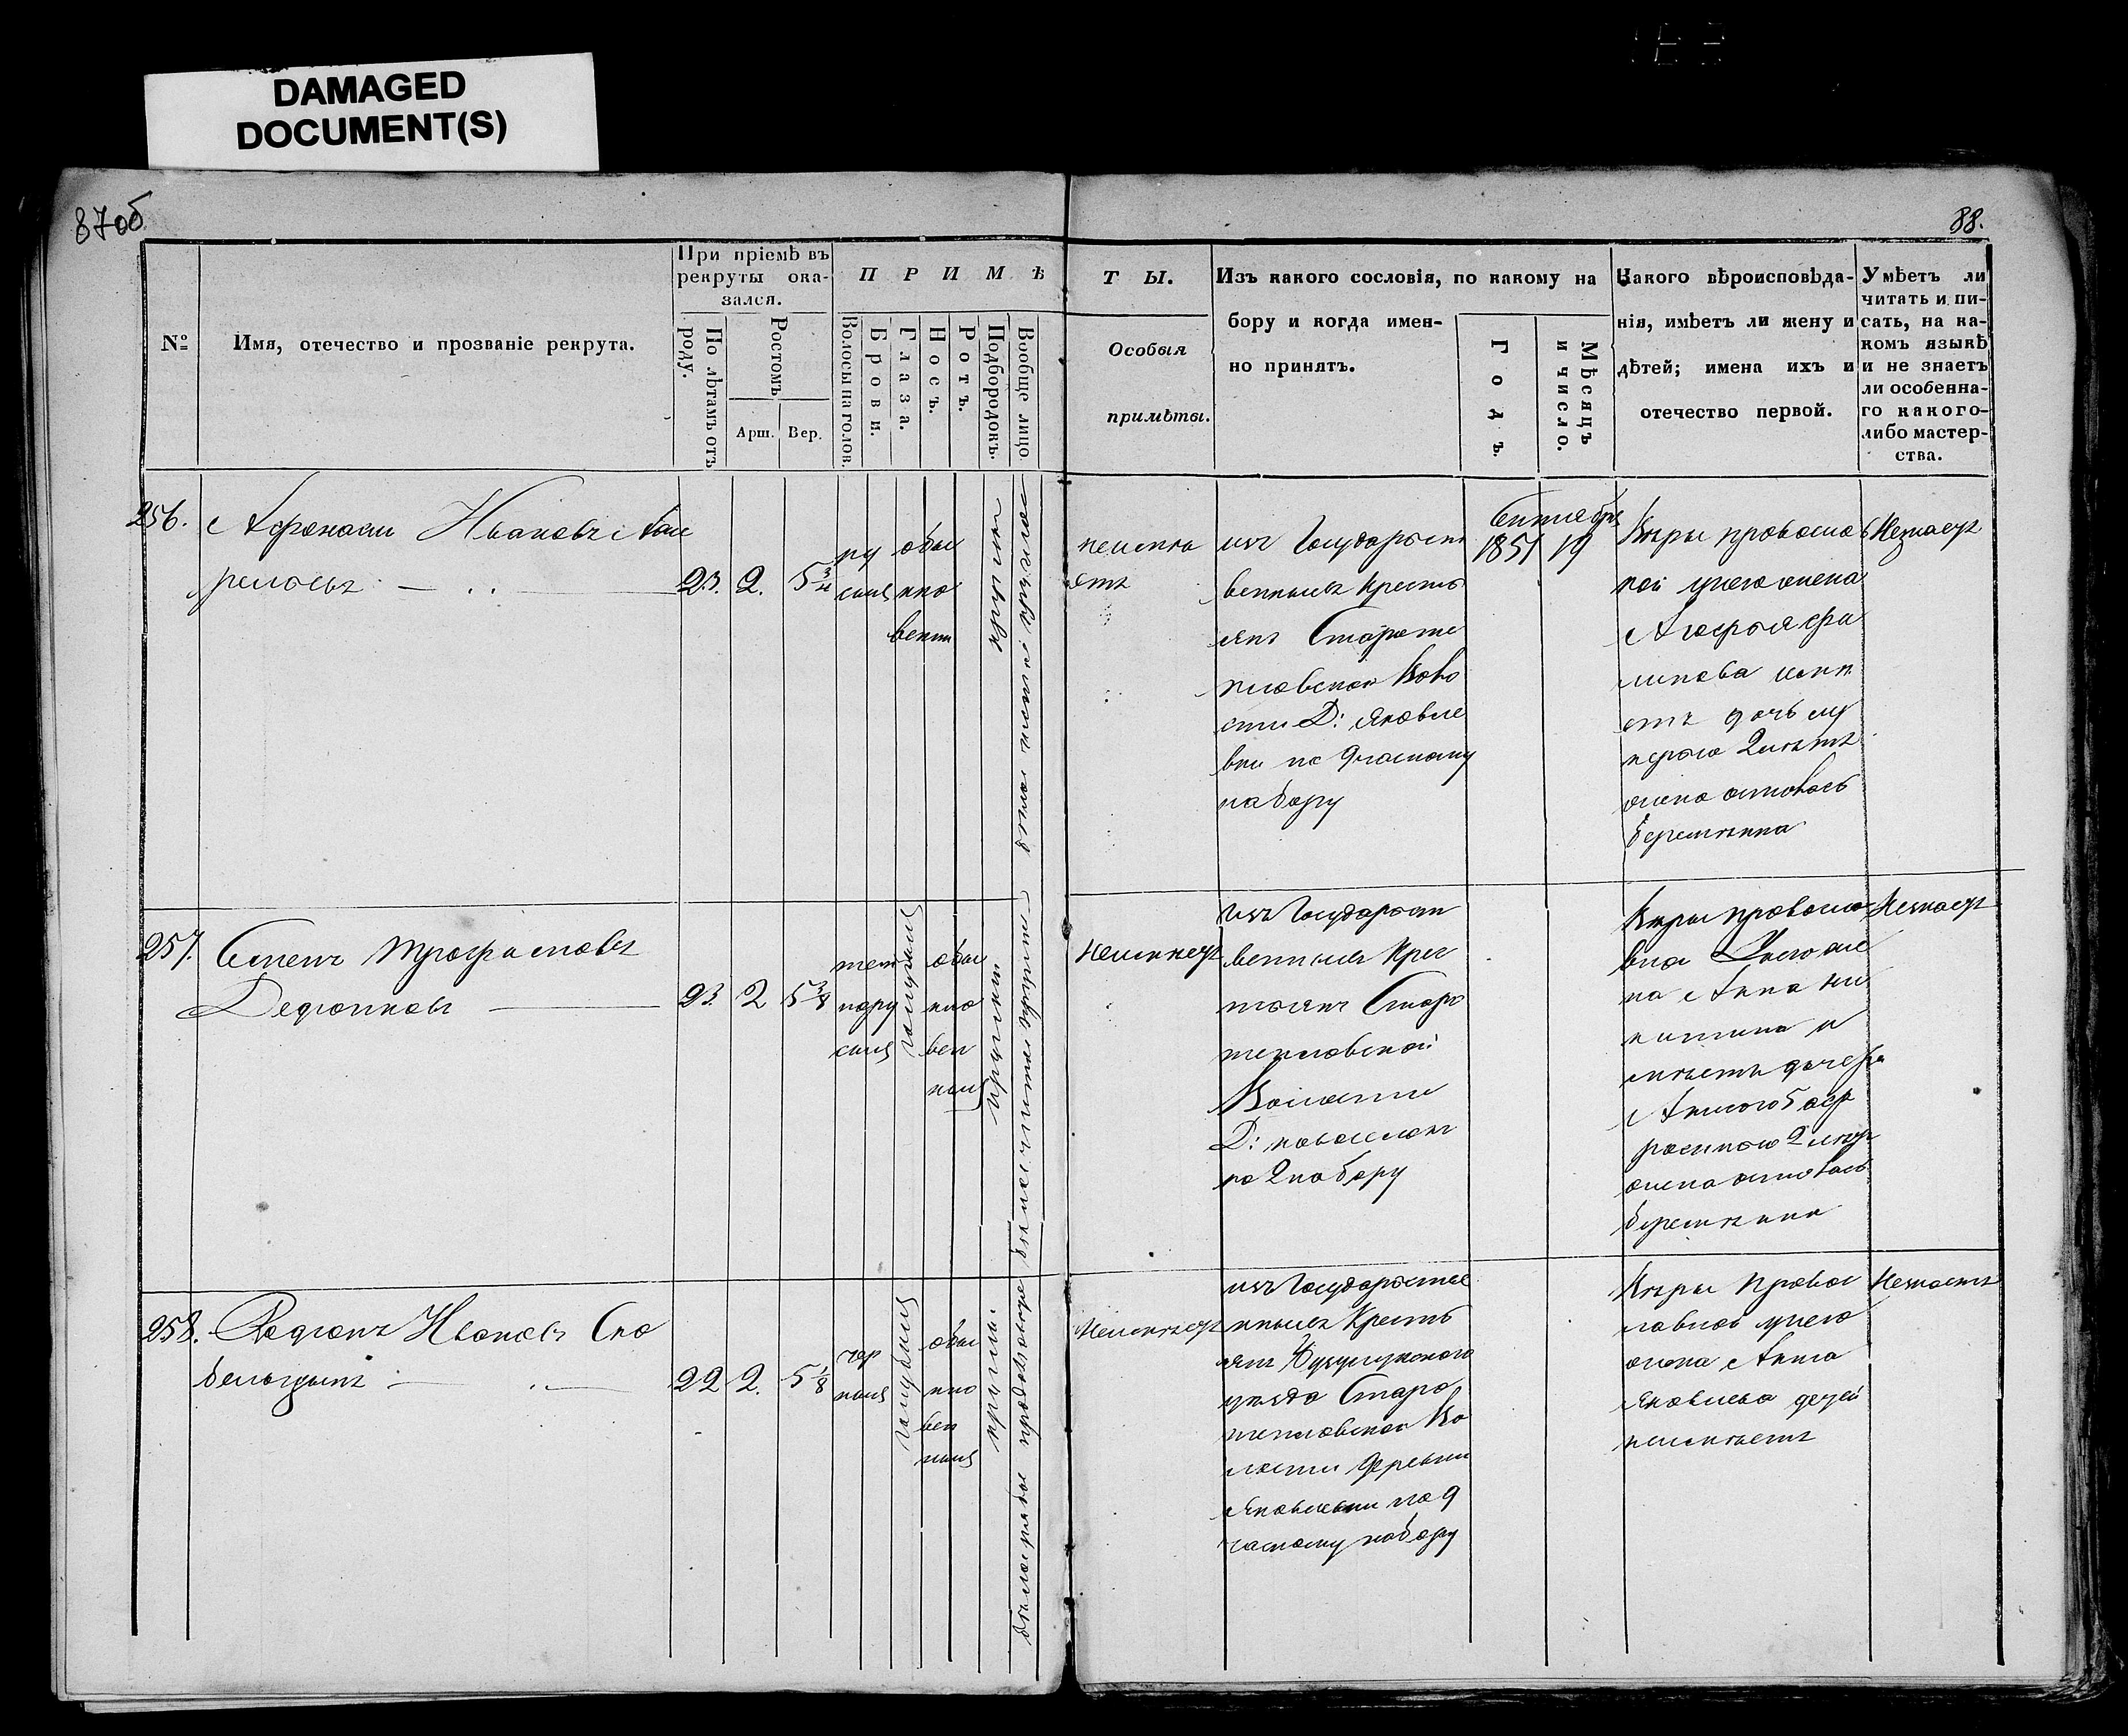 DAMAGED
DOCUMENT(S)
87об
88.
№
Имя, отечество и прозваніе рекрута.
При пріемѣ въ
рекруты ока-
зался.
По лѣтамъ отъ
роду.
Ростомъ
Арш.
Вер.
П Р И М Ѣ
Волосы на голов.
Брови.
Глаза.
Носъ.
Ротъ.
Подбородокъ.
Вообще лицо
Т Ы.
Особыя
примѣты.
Изъ какого сословія, по какому на
бору и когда имен-
но принятъ.
Годъ.
Мѣсяцъ
и число.
Какого вѣроисповѣда-
нія, имѣетъ ли жену и
дѣтей; имена ихъ и
отечество первой.
Умѣетъ ли
читать и пи-
сать, на ка-
комъ языкѣ
и не знаетъ
ли особенна-
го какого-
либо мастер-
ства.
256.
Афонасий Ивановъ
23. 2. 5 3/4
ру
сыя
обы
кно
венн
круглый
неиме
етъ
изъ Государст
венныхъ Кресть
янъ Староте
пловской Воло
сти Д: Яковле
вки по 9 частному
набору
Сентября
1851 19
Вѣры православ
ной у него жена
имѣ
етъ дочь
2 лѣтъ
жена осталась
беременна
Незнаетъ
257.
Семенъ Трофимовъ
23. 2 5 3/8
темно
русыя
голубыя
обы
кно
вен
ныя
круглый
Неимѣетъ
изъ Государст
венныхъ Крес
тьянъ Старо
тепловской
Волости
Д:
по 2 набору
Вѣры правосла
вной
на Анна Ни
китина и
имѣетъ дочерь
2 лѣтъ
жена осталась
беременна
Незнаетъ
258.
Родіонъ Ивановъ Ско
22 2. 5 1/8
чер
ныя
голубыя
обы
кно
вен
ныя
круглый
Неимѣетъ
изъ Государстве
нныхъ Кресть
янъ Бузулукского
уѣзда Старо
тепловской Во
лости Деревни
Яковлевки по 9
частному набору
Вѣры Правос
лавной у него
жена Анна
Яковлева детей
неимѣетъ
Незнаетъ